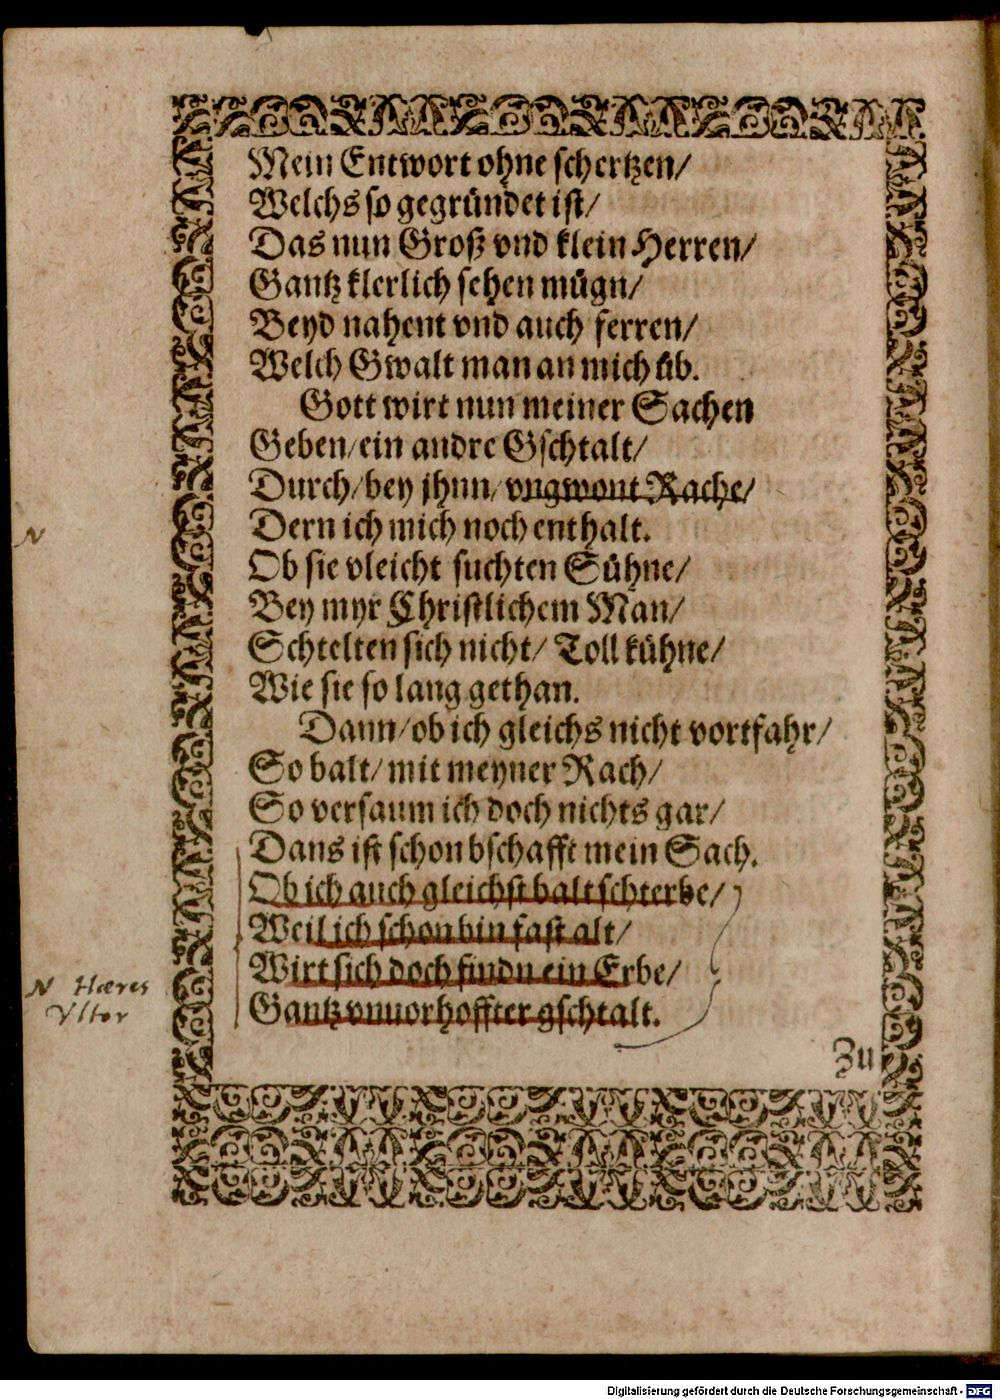 Mein Entwort ohne schertzen/
Welchs so gegründet ist/
Das nun Groß vnd klein Herren/
Gantz klerlich sehen mügn/
Beyd nahent vnd auch ferren/
Welch Gwalt man an mich üb.
Gott wirt nun meiner Sachen
Geben/ ein andre Gschtalt/
Durch/ bey jhnn/ vngwont Rache/
N
Dern ich mich noch enthalt.
Ob sie vleicht suchten Sühne/
Bey myr Christlichem Man/
Schtelten sich nicht/ Toll kühne/
Wie sie so lang gethan.
Dann/ ob ich gleichs nicht vortfahr/
So balt/ mit meyner Rach/
So versaum ich doch nichts gar/
Dans ist schon bschafft mein Sach.
Ob ich auch gleichst balt schterbe/
Weil ich schon bin fast alt/
Wirt sich doch findn ein Erbe/
N Hæres
Gantz vnuorhoffter gschtalt.
Vltor
Zu
Digitalisierung gefördert durch die Deutsche Forschungsgemeinschaft - DFG